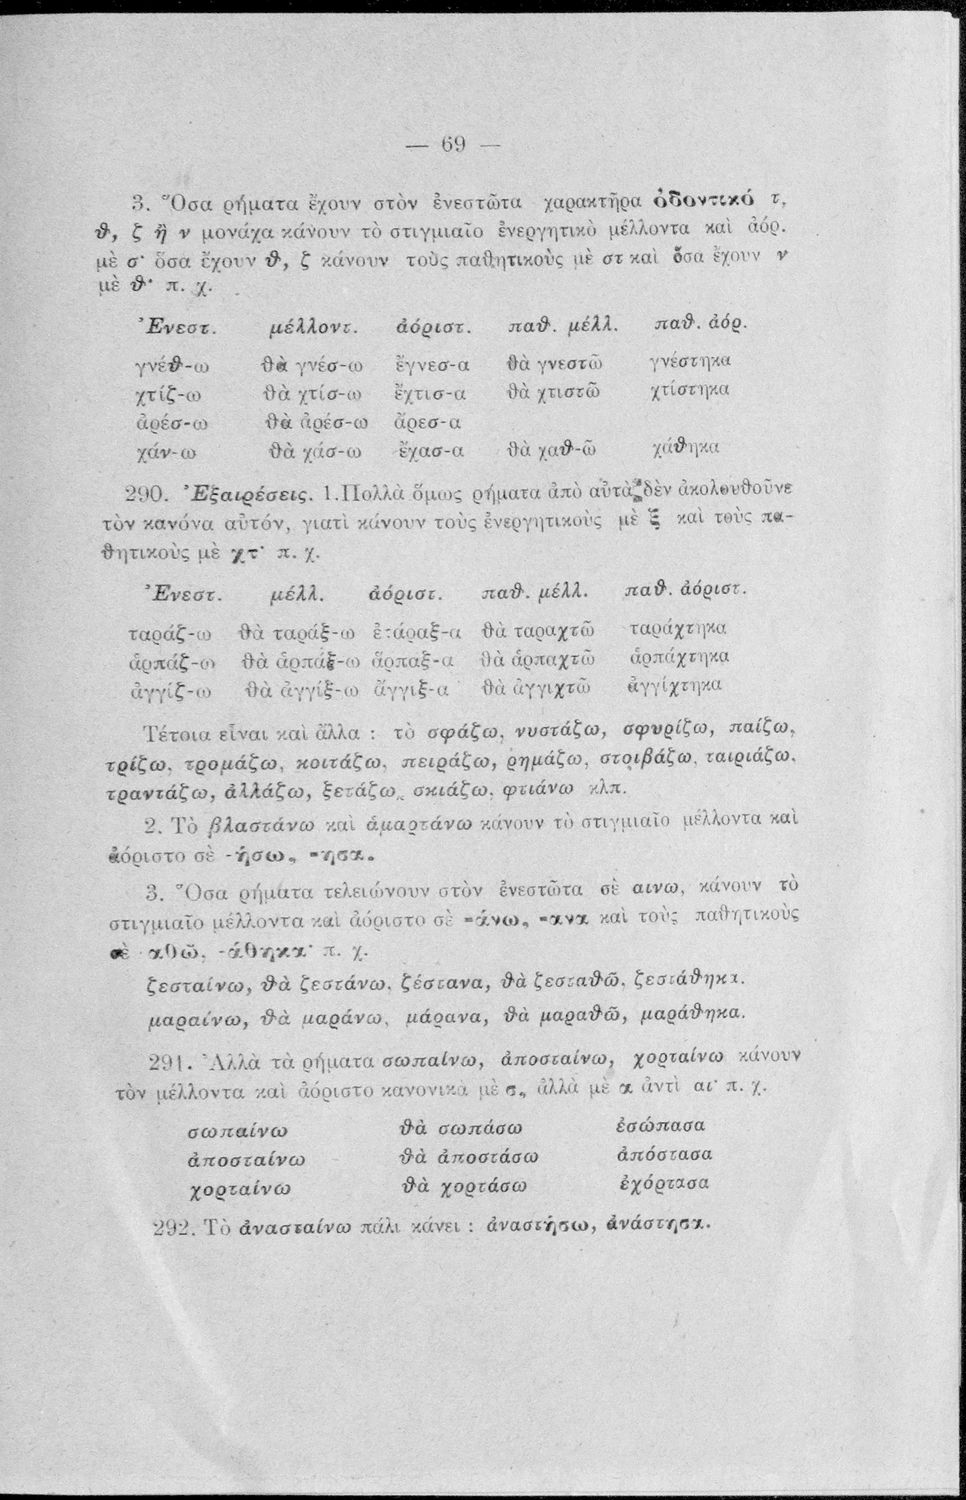 — 69 —
3. Ὅσα ρήματα ἔχουν στὸν ἐνεστῶτα χαρακτῆρα ὀδοντικό τ,
θ, ζ ἢ ν μονάχα κάνουν τὸ στιγμιαῖο ἐνεργητικὸ μέλλοντα καὶ ἀόρ.
μὲ σ· ὅσα ἔχουν θ, ζ κάνουν τοὺς παθητικοὺς μὲ στ καὶ ὅσα ἔχουν ν
μὲ θ· π. χ.
Ἐνεστ. μέλλοντ. ἀόριστ. παθ. μέλλ. παθ. ἀόρ.
γνέθ-ω θὰ γνέσ-ω ἔγνεσ-α θὰ γνεστῶ γνέστηκα
χτίζ-ω θὰ χτίσ-ω ἔχτισ-α θὰ χτιστῶ χτίστηκα
ἀρέσ-ω θὰ ἀρέσ-ω ἄρεσ-α
χάν-ω θὰ χάσ-ω ἔχασ-α θὰ χαθ-ῶ χάθηκα
290. Ἐξαιρέσεις. 1. Πολλὰ ὅμως ρήματα ἀπὸ αὐτὰ δὲν ἀκολουθοῦνε
τὸν κανόνα αὐτόν, γιατὶ κάνουν τοὺς ἐνεργητικοὺς μὲ ξ καὶ τοὺς πα-
θητικοὺς μὲ χτ· π. χ.
Ἐνεστ. μέλλ. ἀόριστ. παθ. μέλλ. παθ. ἀόριστ.
ταράζ-ω θὰ ταράξ-ω ἐτάραξ-α θὰ ταραχτῶ ταράχτηκα
ἁρπάζ-ω θὰ ἁρπάξ-ω ἅρπαξ-α θὰ ἁρπαχτῶ ἁρπάχτηκα
ἀγγίζ-ω θὰ ἀγγίξ-ω ἄγγιξ-α θὰ ἀγγιχτῶ ἀγγίχτηκα
Τέτοια εἶναι καὶ ἄλλα : τὸ σφάζω, νυστάζω, σφυρίζω, παίζω,
τρίζω, τρομάζω, κοιτάζω, πειράζω, ρημάζω, στοιβάζω, ταιριάζω,
τραντάζω, ἀλλάζω, ξετάζω, σκιάζω, φτιάνω κλπ.
2. Τὸ βλαστάνω καὶ ἁμαρτάνω κάνουν τὸ στιγμιαῖο μέλλοντα καὶ
ἀόριστο σὲ -ήσω, -ησα.
3. Ὅσα ρήματα τελειώνουν στὸν ἐνεστῶτα σὲ αινω, κάνουν τὸ
στιγμιαῖο μέλλοντα καὶ ἀόριστο σὲ -άνω, -ανα καὶ τοὺς παθητικοὺς
σὲ -αθῶ, -άθηκα· π. χ.
ζεσταίνω, θὰ ζεστάνω, ζέστανα, θὰ ζεσταθῶ, ζεστάθηκα.
μαραίνω, θὰ μαράνω, μάρανα, θὰ μαραθῶ, μαράθηκα.
291. Ἀλλὰ τὰ ρήματα σωπαίνω, ἀποσταίνω, χορταίνω κάνουν
τὸν μέλλοντα καὶ ἀόριστο κανονικὰ μὲ σ, ἀλλὰ μὲ α ἀντὶ αι· π. χ.
σωπαίνω θὰ σωπάσω ἐσώπασα
ἀποσταίνω θὰ ἀποστάσω ἀπόστασα
χορταίνω θὰ χορτάσω ἐχόρτασα
292. Τὸ ἀνασταίνω πάλι κάνει : ἀναστήσω, ἀνάστησα.